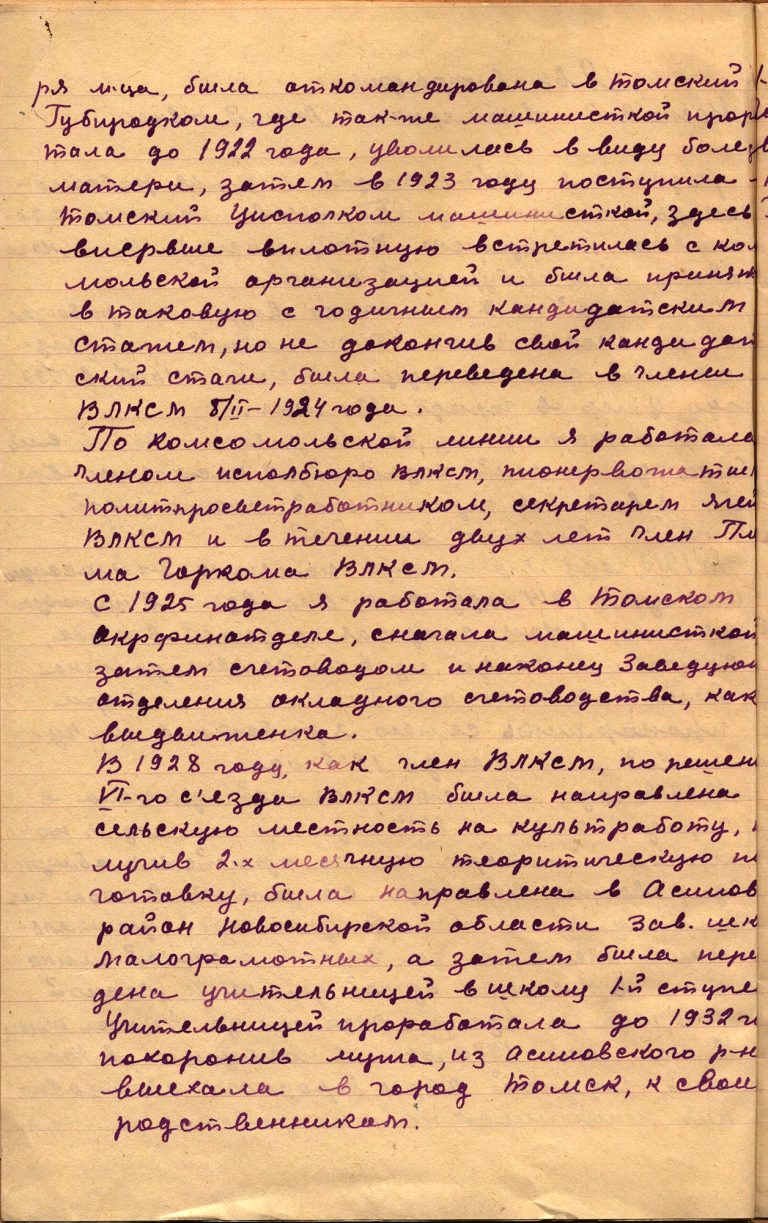 ря м-ца, была откомандирована в Томский
Губпродком, где так-же машинисткой прора
тала до 1922 года, уволилась в виду болез
матери, затем в 1923 году поступила
Томский Уисполком машинисткой, здесь
впервые вплотную встретилась с ком
мольской организацией и была принят
в таковую с годичным кандидатским
стажем, но не докончив свой кандидат
ский стаж, была переведена в члены
ВЛКСМ 8/II-1924 года.
По комсомольской линии я работала
членом исполбюро ВЛКСМ, пионервожатым
политпросветработником, секретарем ячей
ВЛКСМ и в течении двух лет член Пле
ма Горкома ВЛКСМ.
С 1925 года я работала в Томском
Окрфинотделе, сначала машинисткой
затем счетоводом и наконец Заведующ
отделения окладного счетоводства, как
выдвиженка.
В 1928 году, как член ВЛКСМ, по решен
VI-го с'езда ВЛКСМ была направлена
сельскую местность на культработу,
лучив 2-х месячную теоритическую п
готовку, была направлена в Асинов
район Новосибирской области Зав. шк
малограмотных, а затем была пере
дена учительницей в школу 1-й ступе
Учительницей проработала до 1932 г
похоронив мужа, из Асиновского р-н
выехала в город Томск, к свои
родственникам.